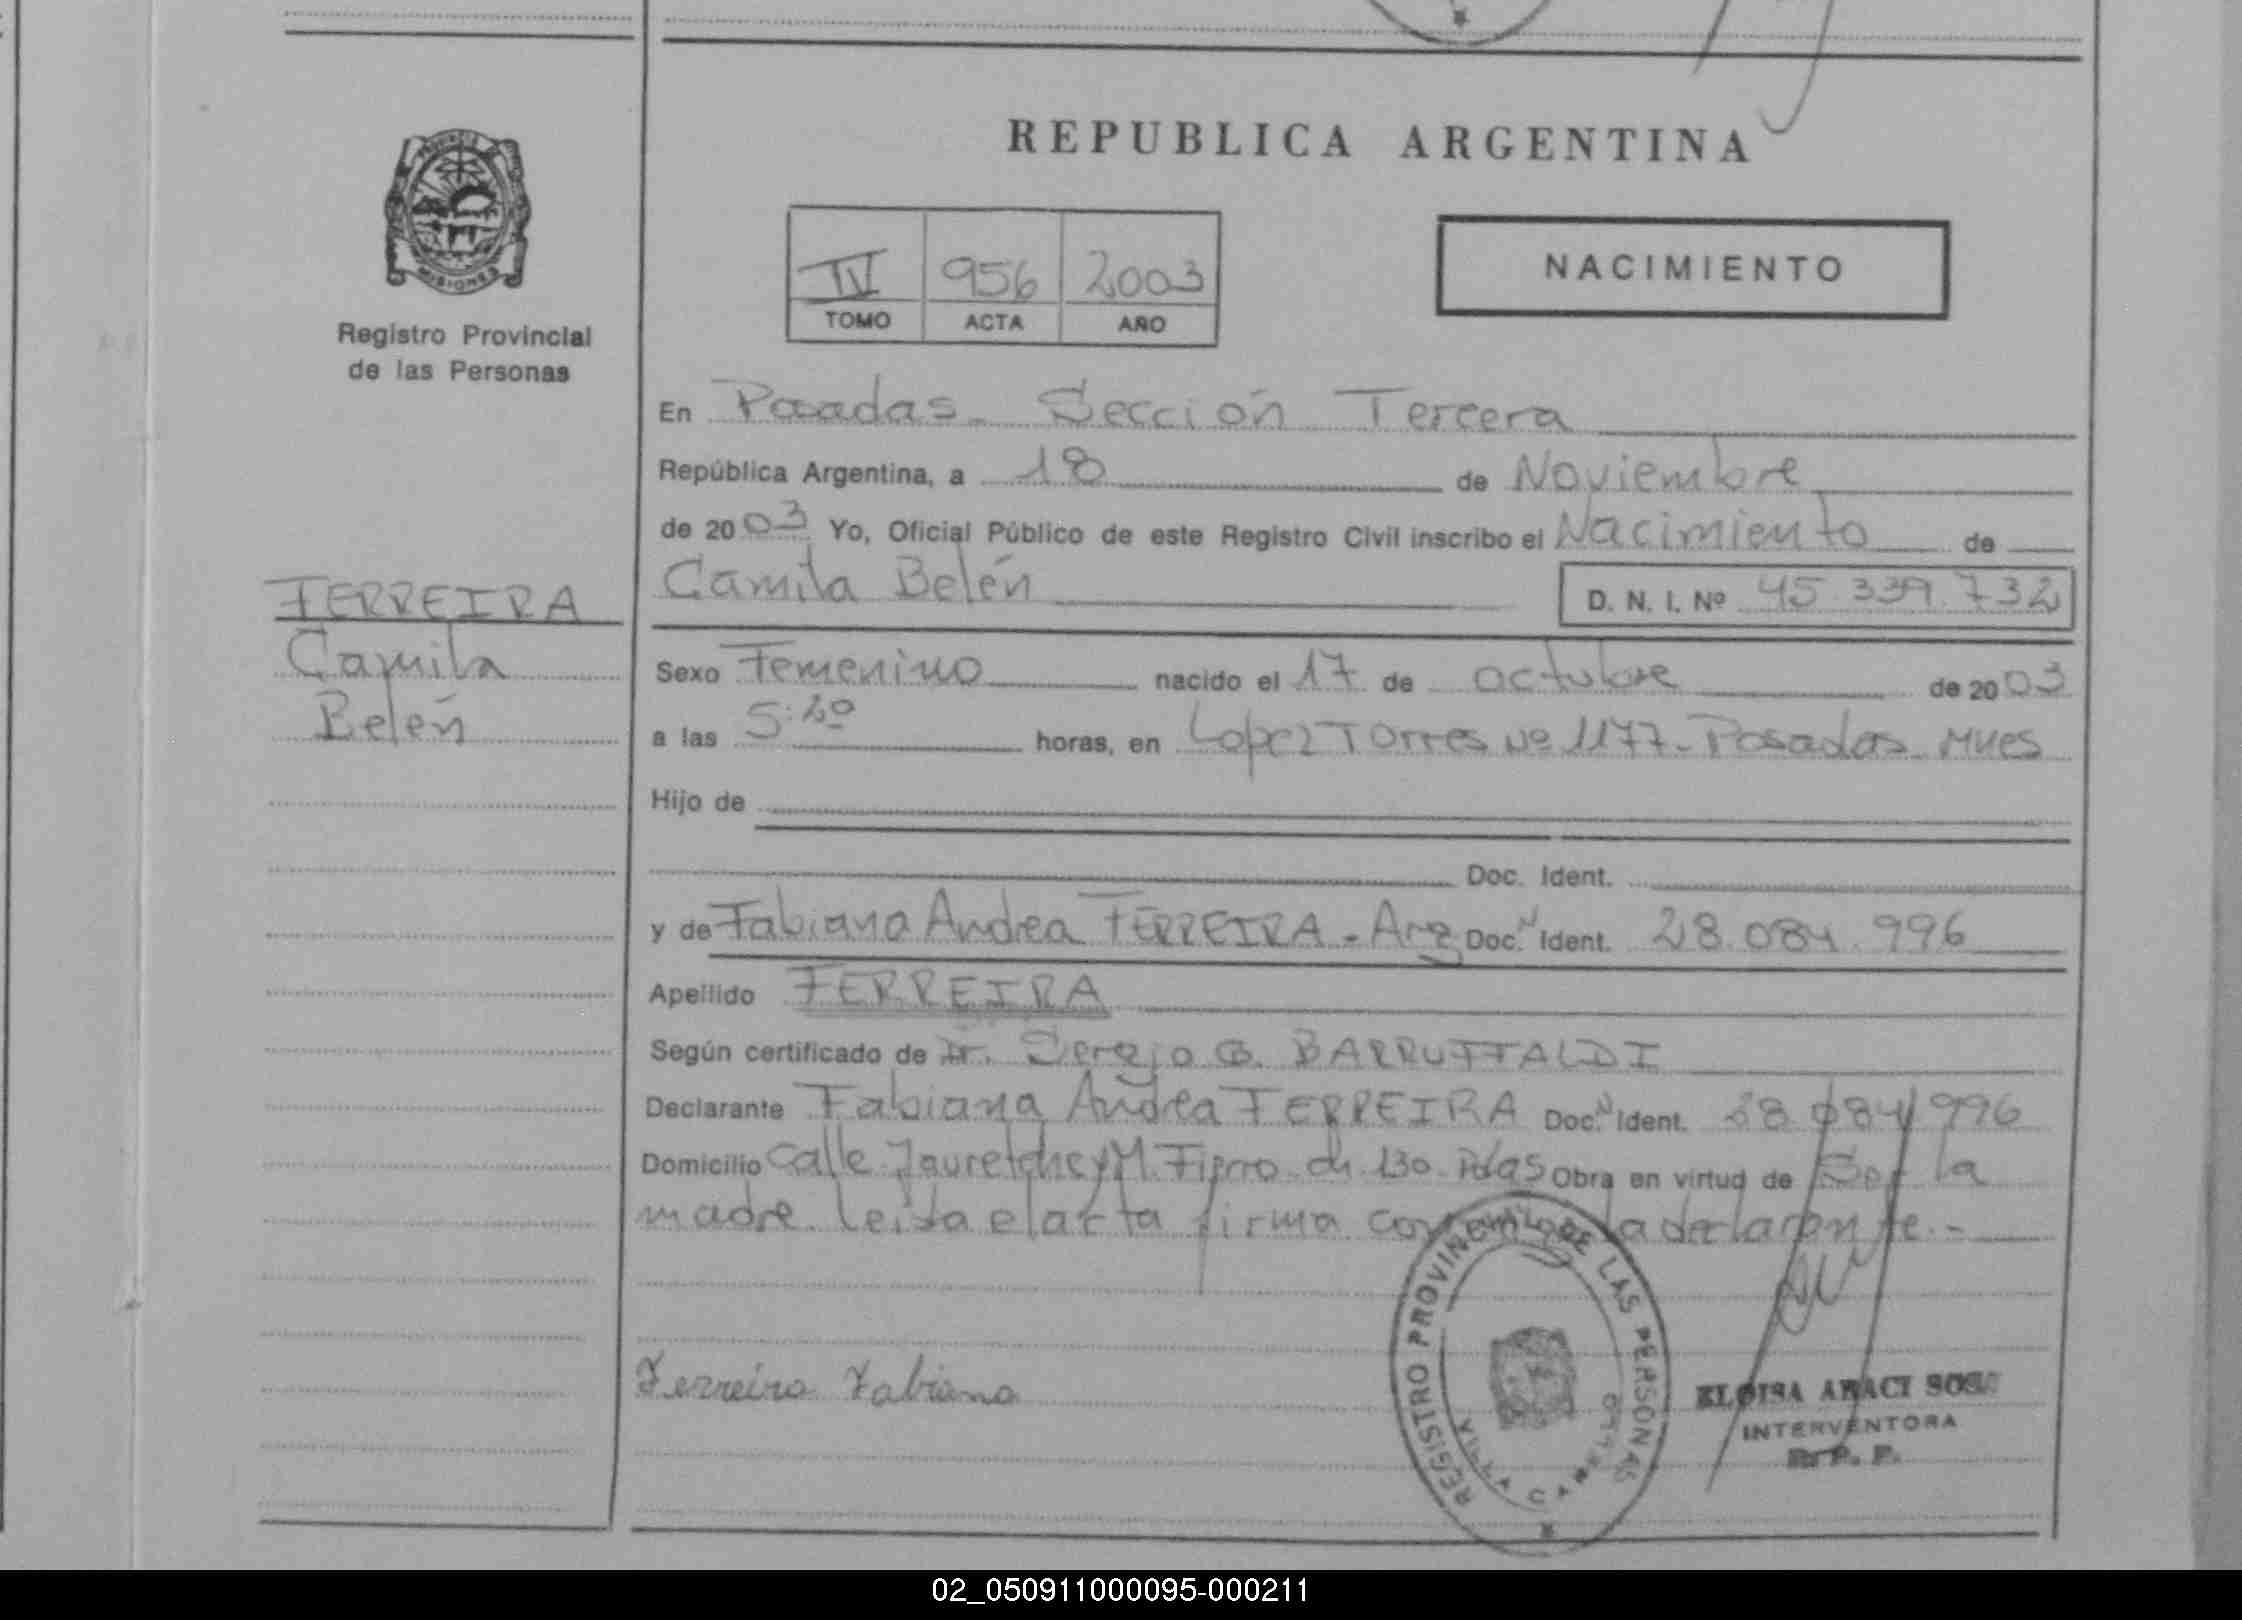 REPUBLICA ARGENTINA
PROVINCIA
MISIONES
Registro Provincial
de las Personas
IV 956 2003
TOMO ACTA AÑO
NACIMIENTO
En Posadas - Sección Tercera
República Argentina, a 18 de Noviembre
de 2003 Yo, Oficial Público de este Registro Civil inscribo el Nacimiento de
Camila Belén D. N. I. Nº 45.339.732
FERREIRA
Camila
Belén
Sexo Femenino nacido el 17 de octubre de 2003
a las 5:20 horas, en Lopez Torres Nº 1177 - Posadas Mnes
Hijo de
Doc. Ident.
y de Fabiana Andrea FERREIRA - Arg Doc. N Ident. 28.084.996
Apellido FERREIRA
Según certificado de Dr. Sergio G. BARRUFFALDI
Declarante Fabiana Andrea FERREIRA Doc. N Ident. 28.084.996
Domicilio Calle Jauretche y M. Fierro ch 130 Pdas Obra en virtud de Ser la
madre. Leida el acta firma conmigo la declarante.-
Ferreira Fabiana
REGISTRO PROVINCIAL DE LAS PERSONAS
VILLA CABELLO
ELOISA ARACI SOSA
INTERVENTORA
R. P. P.
02_050911000095-000211